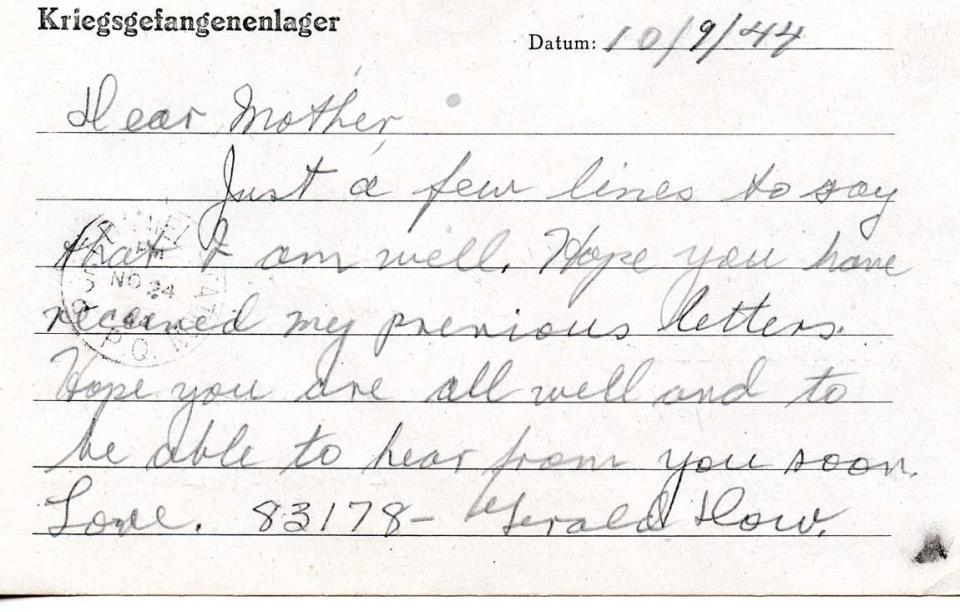 Kriegsgefangenenlager
Datum: 10/9/44
Dear Mother,
Just a few lines to say
that I am well. Hope you have
received my previous letters.
Hope you are all well and to
be able to hear from you soon.
Love. 83178- Gerald Dow.
NO 24
P.Q.